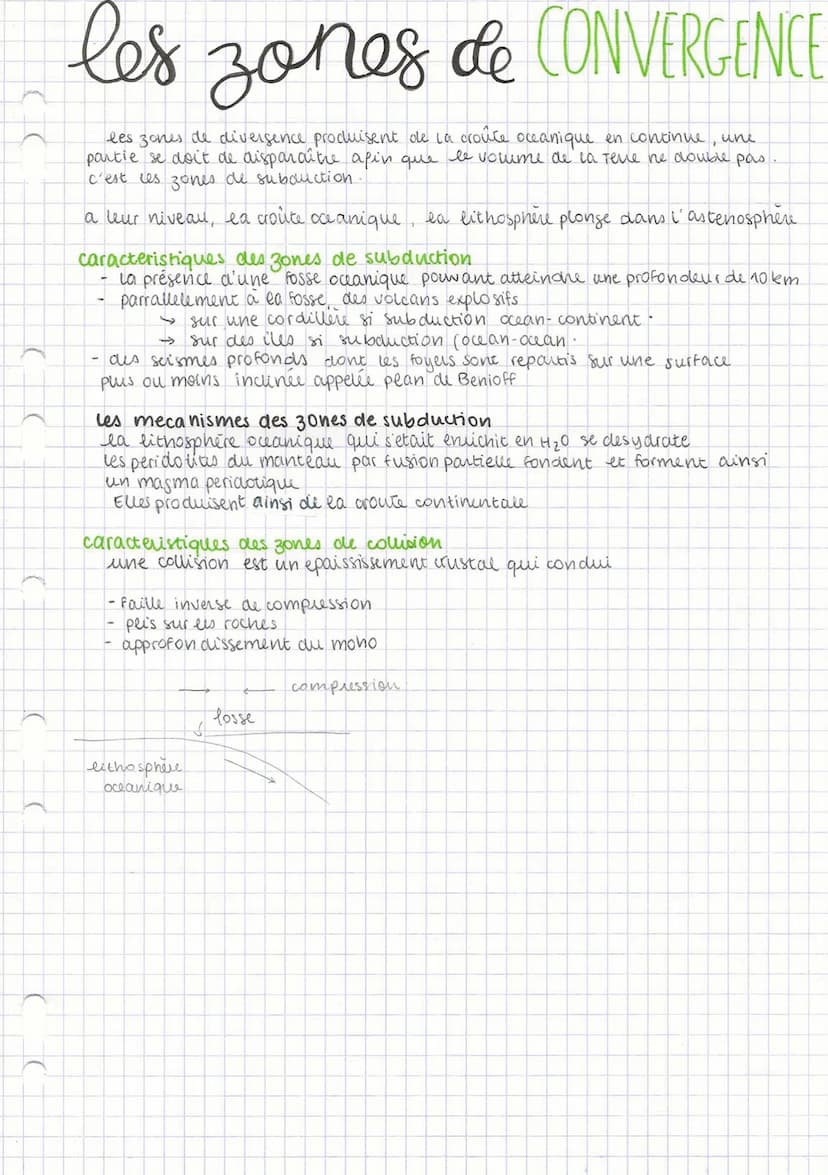 les zones de CONVERGENCE
les zones de divergence produisent de la croûte oceanique en continue, une
partie se doit de disparaître afin que le volume de la Terre ne double pas.
c'est les zones de subduction.
a leur niveau, la croûte oceanique, la lithosphère plonge dans l'astenosphère
caracteristiques des zones de subduction
- la présence d'une fosse oceanique pouvant atteindre une profondeur de 10 km
- parrallelement à la fosse, des volcans explosifs
→ sur une cordillère si subduction ocean-continent.
→ sur des iles si subduction (ocean-ocean.
- des seismes profonds dont les foyers sont repartis sur une surface
plus ou moins inclinée appelée plan de Benioff
les mecanismes des zones de subduction
la lithosphère oceanique qui s'etait enrichie en H₂O se desydrate
les peridotites du manteau par fusion partielle fondent et forment ainsi
un magma
Elles produisent ainsi de la croute continentale
caracteristiques des zones de collision
une collision est un epaississement crustal qui condui
- faille inverse de compression
- plis sur les roches
- approfondissement du moho
→ ← compression
fosse
lithosphère
oceanique